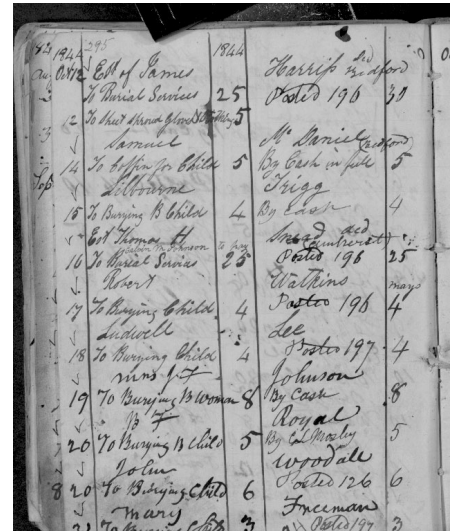 1844 295 1844
Oct 12 Est of James Harriss Decd
To Burial Services 25 Posted 196 30
12 To Sheet Shroud Gloves 5
Samuel McDaniel
14 To Coffin for Child 5 By Cash in full 5
Lilbourne Trigg
15 To Burying B Child 4 By Cash 4
Est Thomas H Snead decd
16 To Burial Servics 25 Posted 196 25
Robert Watkins
17 To Burying Child 4 Posted 196 4
Ludwell Lee
18 To Burying Child 4 Posted 197 4
Johnson
19 To Burying B Woman 8 By Cash 8
Royal
20 To Burying B Child 5 By Mosby 5
John Woodale
20 To Burying Child 6 Posted 126 6
Mary Freeman
To Burying Child 3 Posted 197 3